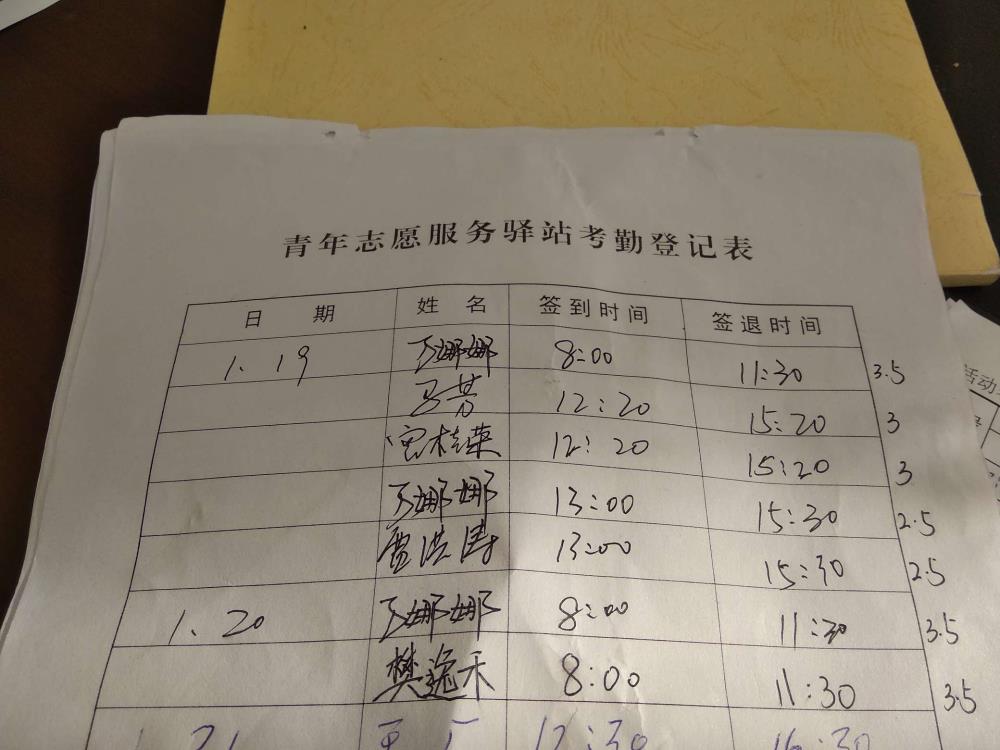 青年志愿服务驿站考勤登记表
日 期 姓 名 签到时间 签退时间
1.19 丁娜娜 8:00 11:30 3.5
马芳 12:20 15:20 3
桂荣 12:20 15:20 3
丁娜娜 13:00 15:30 2.5
雷洪涛 13:00 15:30 2.5
1.20 丁娜娜 8:00 11:30 3.5
樊逸禾 8:00 11:30 3.5
1.21 12:30 16:30
活动